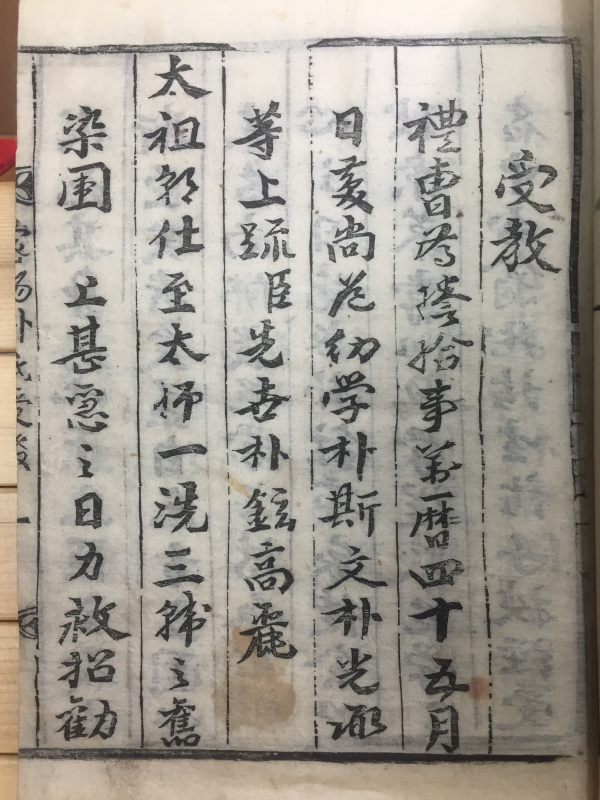 受教
禮曹為謄給事萬曆四十五月
日慶尚道幼學朴斯文朴光
等上疏臣先世朴鉉高麗
太祖朝仕至太师一洗三韓之舊
染国 上甚之曰力救招勸
密陽朴氏受教 一